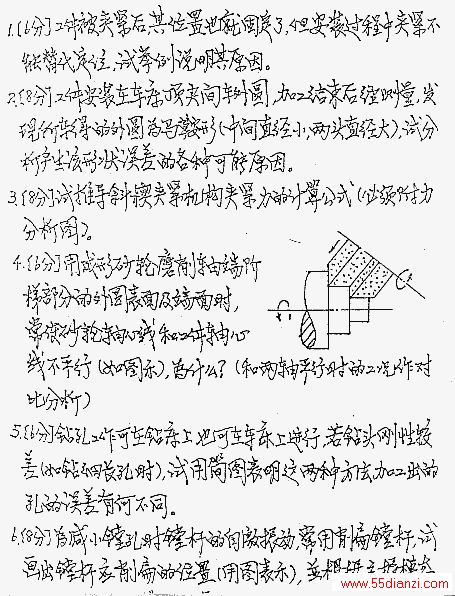 1.[6分]工件被夹紧后,其位置也就固定了,但安装过程中夹紧不
能替代定位,试举例说明其原因。
2.[8分]工件安装在车床顶尖间车外圆,加工结束后经测量,发
现所获得的外圆为马鞍形(中间直径小,两头直径大),试分
析产生该形状误差的各种可能原因。
3.[8分]试推导斜楔夹紧机构夹紧力的计算公式(必须附力
分析图)。
4.[6分]用成形砂轮磨削轴端阶
梯部分的外圆表面及端面时,
常使砂轮轴心线和工件轴心
线不平行(如图示),为什么?(和两轴平行时的工况作对
比分析)
5.[6分]钻孔工作可在钻床上,也可在车床上进行,若钻头刚性较
差(如钻细长孔时),试用简图表明这两种方法加工出的
孔的误差有何不同。
6.[8分]为减小镗孔时镗杆的自激振动,常用削扁镗杆,试
画出镗杆应削扁的位置(用图表示),并根据
www.55dianzi.com